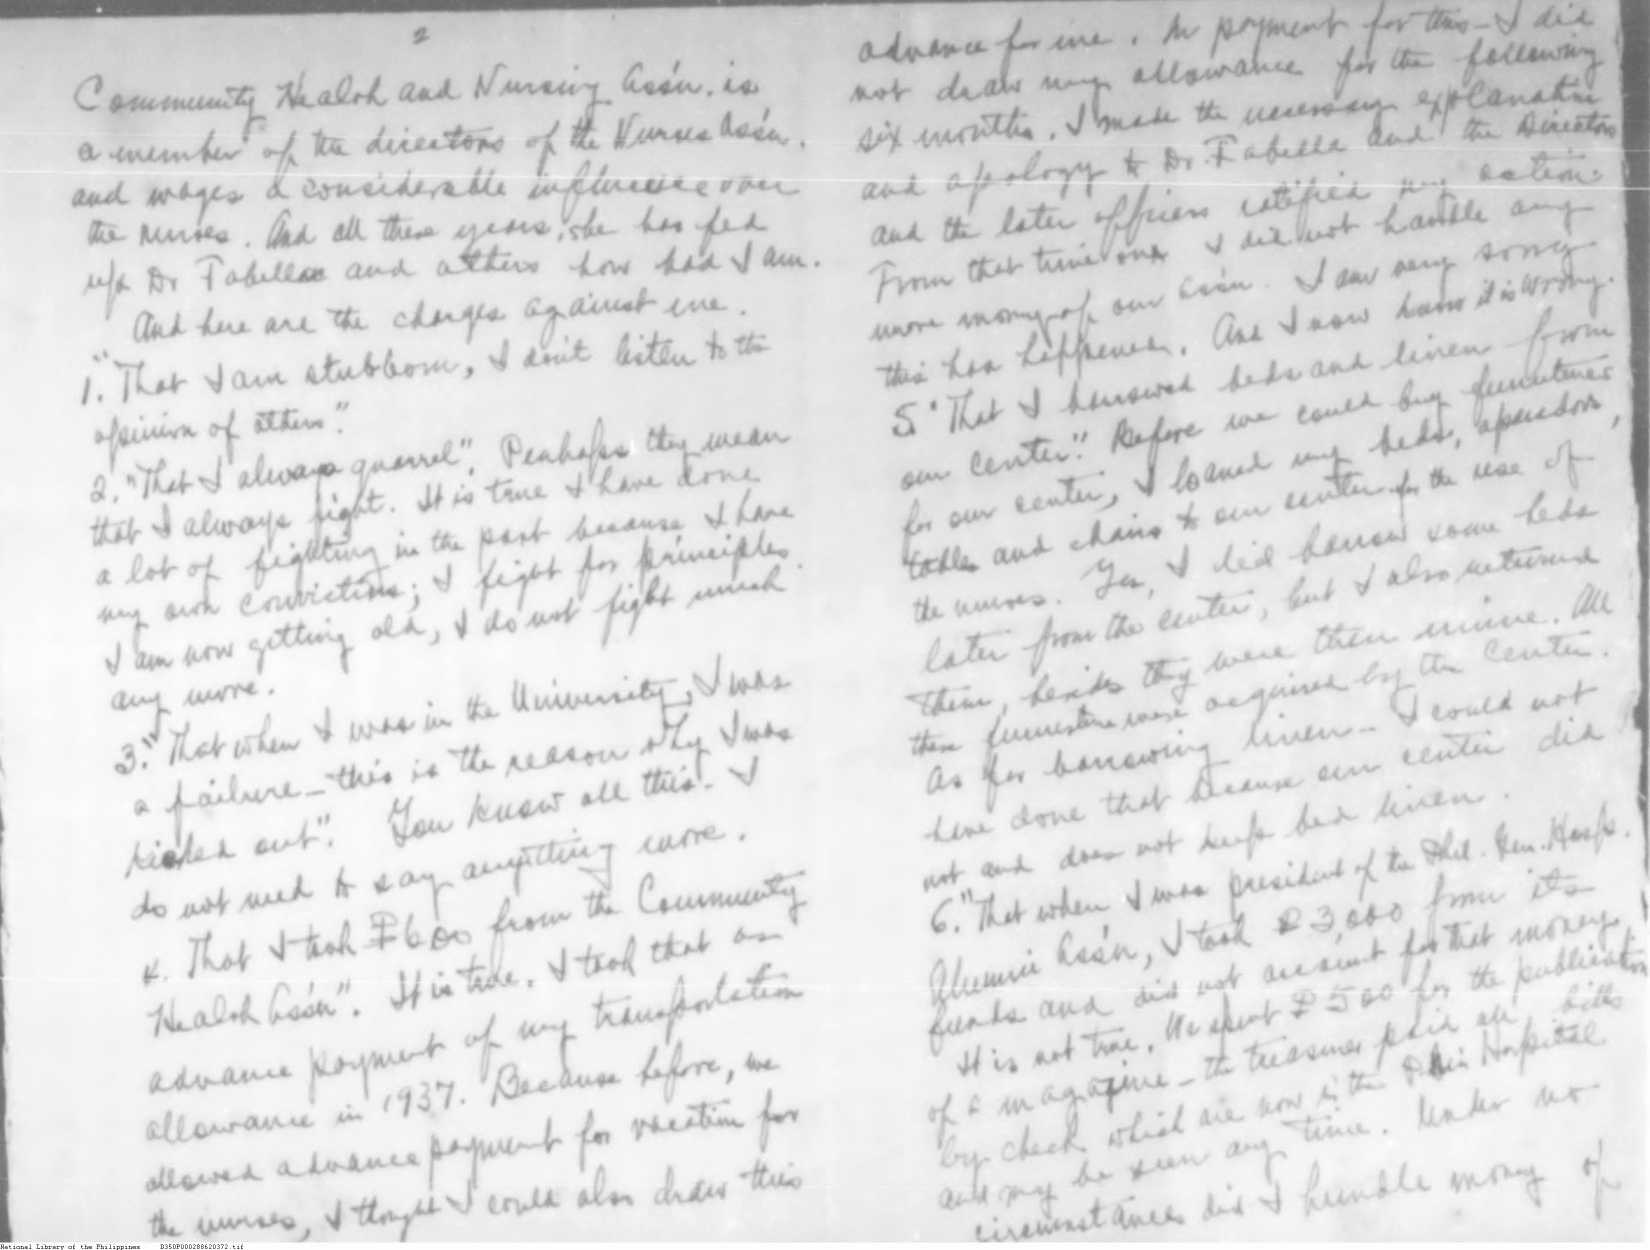 2
Community Health and Nursing Ass'n. is
a member of the directors of the Nurses Ass'n.
and wages a considerable influence over
the nurses. And all these years, she has fed
up Dr Fabella and others how bad I am.
And here are the charges against me.
1. "That I am stubborn, I don't listen to the
opinion of others".
2. "That I always quarrel". Perhaps they mean
that I always fight. It is true I have done
a lot of fighting in the past because I have
my own convictions; I fight for principles.
I am now getting old, I do not fight much
any more.
3. "That when I was in the University, I was
a failure – this is the reason why I was
kicked out". You know all this. I
do not need to say anything more.
4. That I took ₱600 from the Community
Health Ass'n". It is true. I took that as
advance payment of my transportation
allowance in 1937. Because before, we
allowed advance payment for vacation for
the nurses, I thought I could also draw this
advance for me. In payment for this – I did
not draw my allowance for the following
six months. I made the necessary explanation
and apology to Dr. Fabella and the Directors
and the later officers ratified my action.
From that time on I did not handle any
more money of our Ass'n. I am very sorry
this has happened. And I now know it is wrong.
5. "That I borrowed beds and linen from
our center". Before we could buy furnitures
for our center, I loaned my beds, aparadors,
tables and chairs to our center for the use of
the nurses. Yes, I did borrow some beds
later from the center, but I also returned
them, besides they were then mine. All
these furniture were acquired by the center.
As for borrowing linen – I could not
have done that because our center did
not and does not keep bed linen.
6. "That when I was president of the Phil. Gen. Hosp.
Alumni Ass'n, I took ₱3,000 from its
funds and did not account for that money.
It is not true. We spent ₱500 for the publication
of a magazine – the treasurer paid all bills
by check which are now in the Phil Hospital
and may be seen any time. Under no
circumstances did I handle money of
National Library of the Philippines B350P000288620372.tif